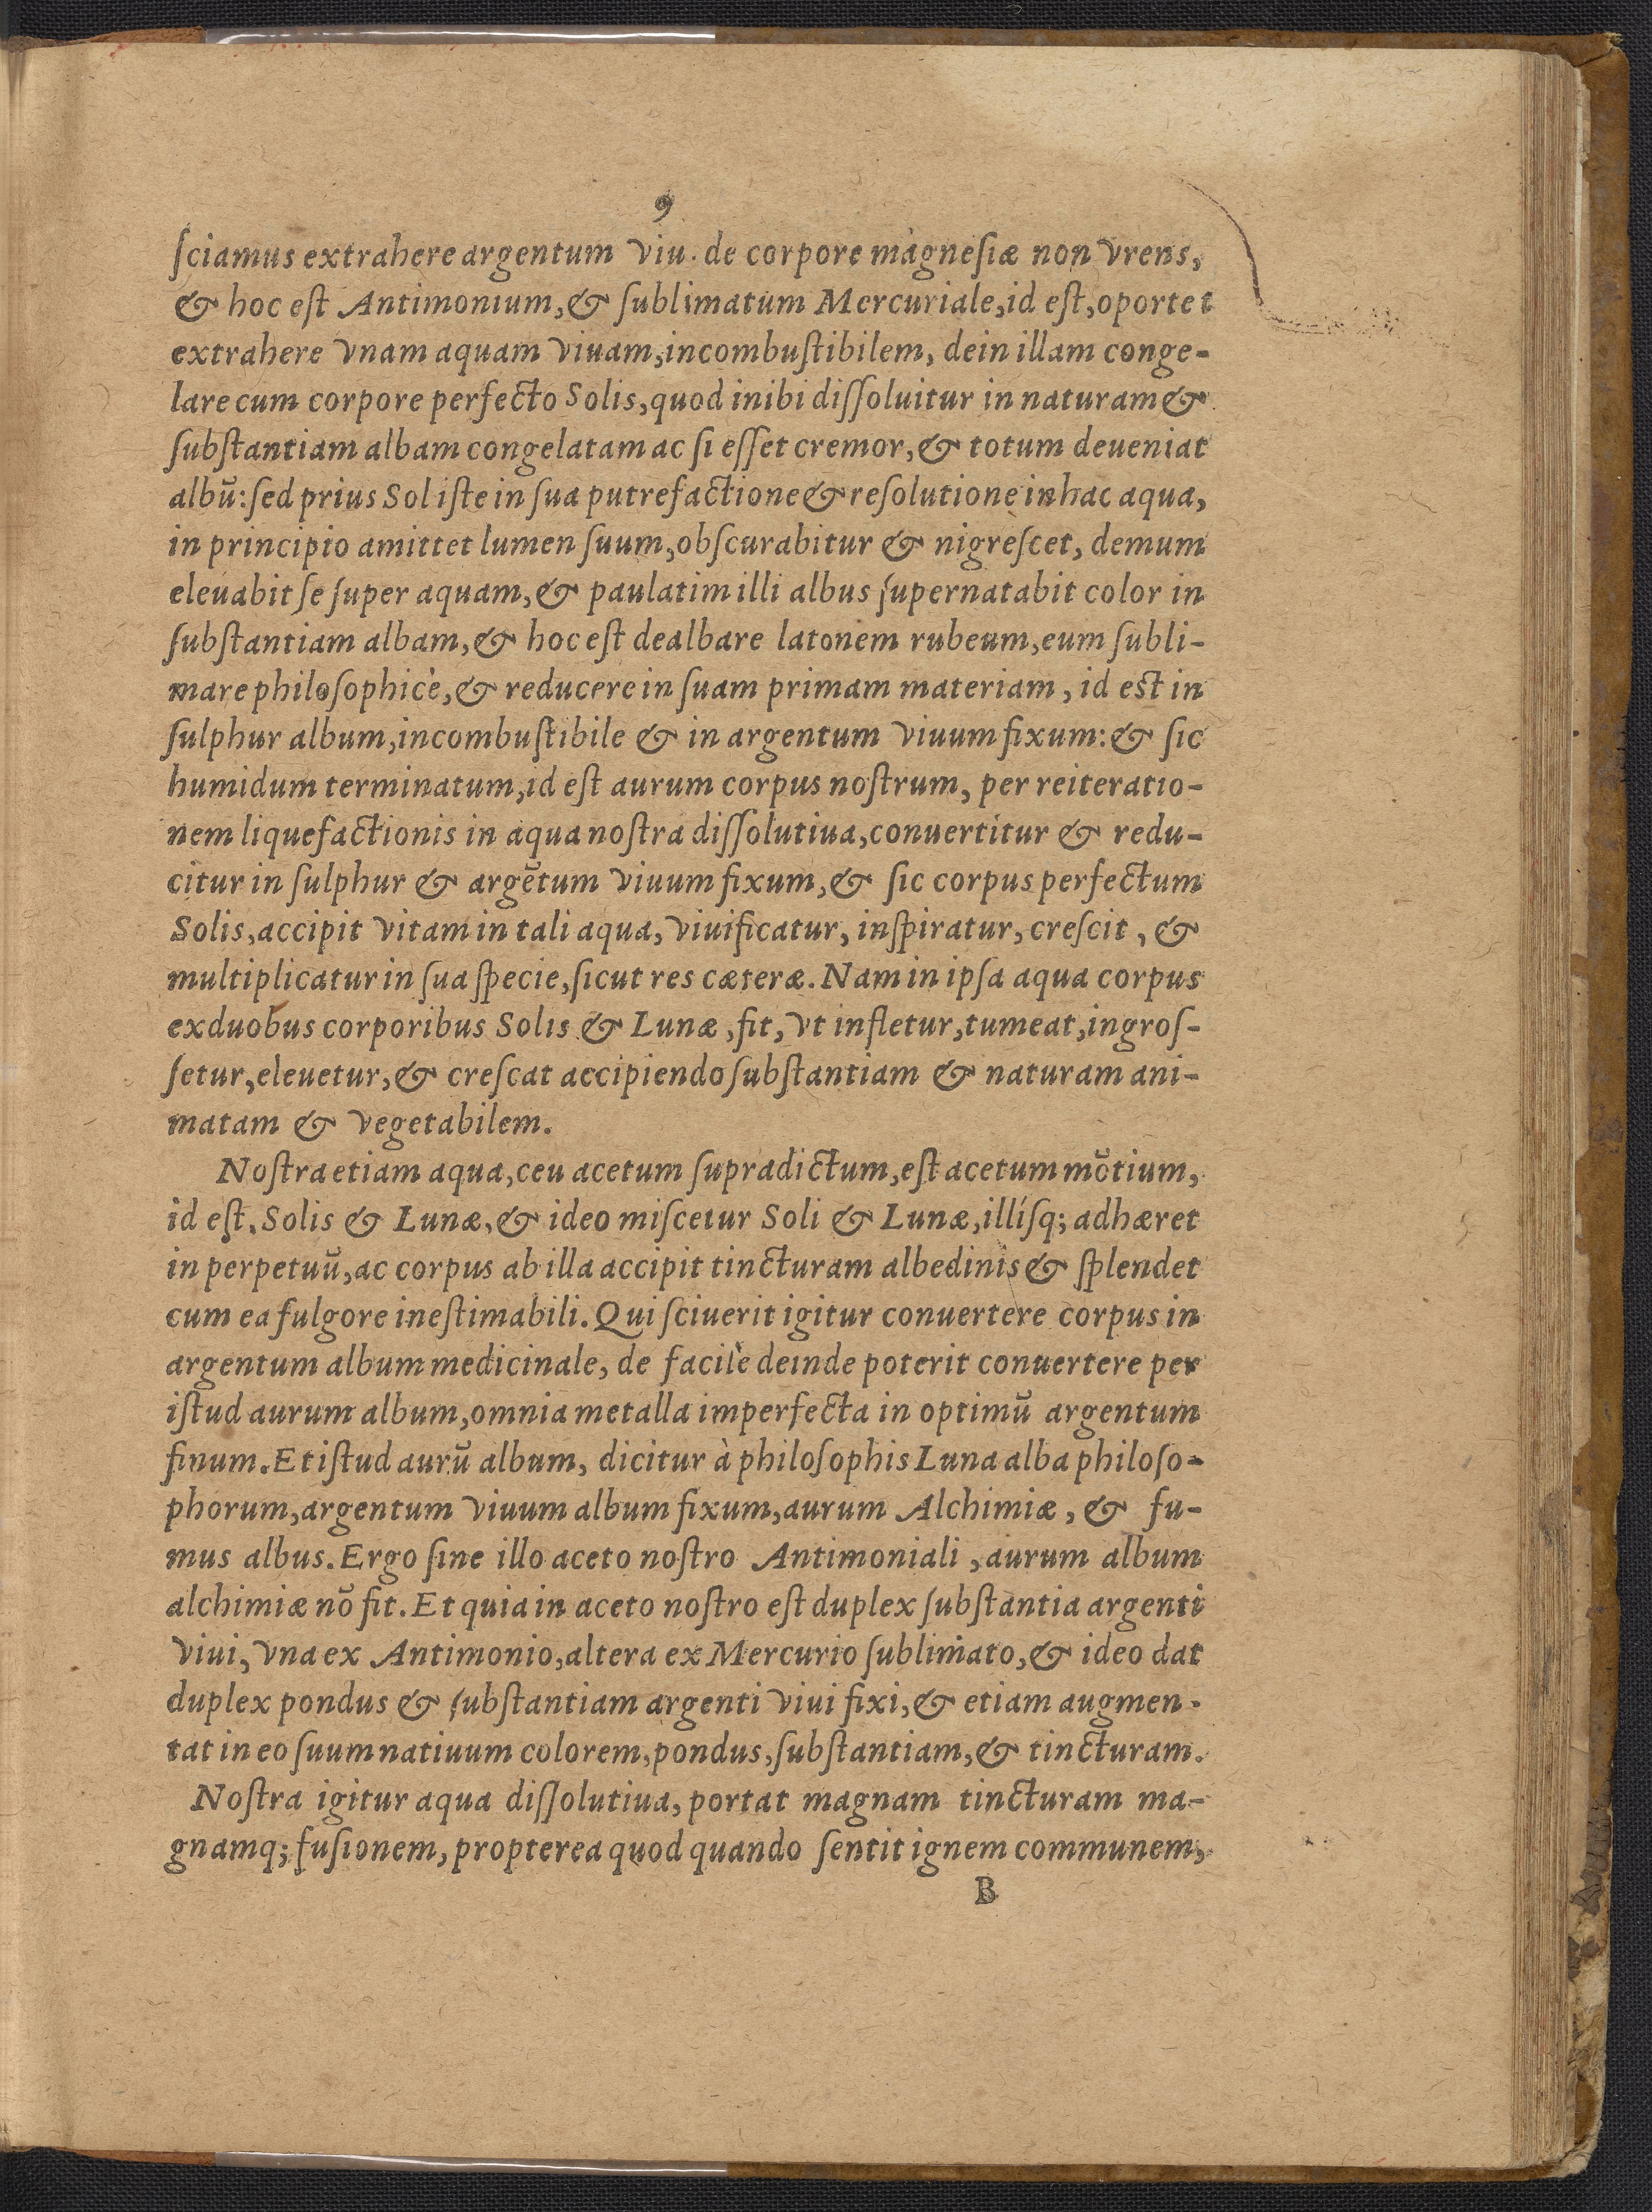 9
ſciamus extrahere argentum viu. de corpore magneſiæ non vrens,
& hoc eſt Antimonium, & ſublimatum Mercuriale, id eſt, oportet
extrahere vnam aquam viuam, incombuſtibilem, dein illam conge-
lare cum corpore perfecto Solis, quod inibi diſſoluitur in naturam &
ſubſtantiam albam congelatam ac ſi eſſet cremor, & totum deueniat
albū: ſed prius Sol iſte in ſua putrefactione & reſolutione in hac aqua,
in principio amittet lumen ſuum, obſcurabitur & nigreſcet, demum
eleuabit ſe ſuper aquam, & paulatim illi albus ſupernatabit color in
ſubſtantiam albam, & hoc eſt dealbare latonem rubeum, eum ſubli-
mare philoſophicè, & reducere in ſuam primam materiam, id est in
ſulphur album, incombuſtibile & in argentum viuum fixum: & ſic
humidum terminatum, id eſt aurum corpus noſtrum, per reiteratio-
nem liquefactionis in aqua noſtra diſſolutiua, conuertitur & redu-
citur in ſulphur & argētum viuum fixum, & ſic corpus perfectum
Solis, accipit vitam in tali aqua, viuificatur, inſpiratur, creſcit, &
multiplicatur in ſua ſpecie, ſicut res cæteræ. Nam in ipſa aqua corpus
exduobus corporibus Solis & Lunæ, fit, vt infletur, tumeat, ingroſ-
ſetur, eleuetur, & creſcat accipiendo ſubſtantiam & naturam ani-
matam & vegetabilem.
Noſtra etiam aqua, ceu acetum ſupradictum, eſt acetum mōtium,
id eſt. Solis & Lunæ, & ideo miſcetur Soli & Lunæ, illíſq; adhæret
in perpetuū, ac corpus ab illa accipit tincturam albedinis & ſplendet
cum ea fulgore ineſtimabili. Qui ſciuerit igitur conuertere corpus in
argentum album medicinale, de facilè deinde poterit conuertere per
iſtud aurum album, omnia metalla imperfecta in optimū argentum
finum. Et iſtud aurū album, dicitur à philoſophis Luna alba philoſo-
phorum, argentum viuum album fixum, aurum Alchimiæ, & fu-
mus albus. Ergo ſine illo aceto noſtro Antimoniali, aurum album
alchimiæ nō fit. Et quia in aceto noſtro eſt duplex ſubſtantia argenti
viui, vna ex Antimonio, altera ex Mercurio ſublimato, & ideo dat
duplex pondus & ſubſtantiam argenti viui fixi, & etiam augmen-
tat in eo ſuum natiuum colorem, pondus, ſubſtantiam, & tincturam.
Noſtra igitur aqua diſſolutiua, portat magnam tincturam ma-
gnamq; fuſionem, propterea quod quando ſentit ignem communem,
B